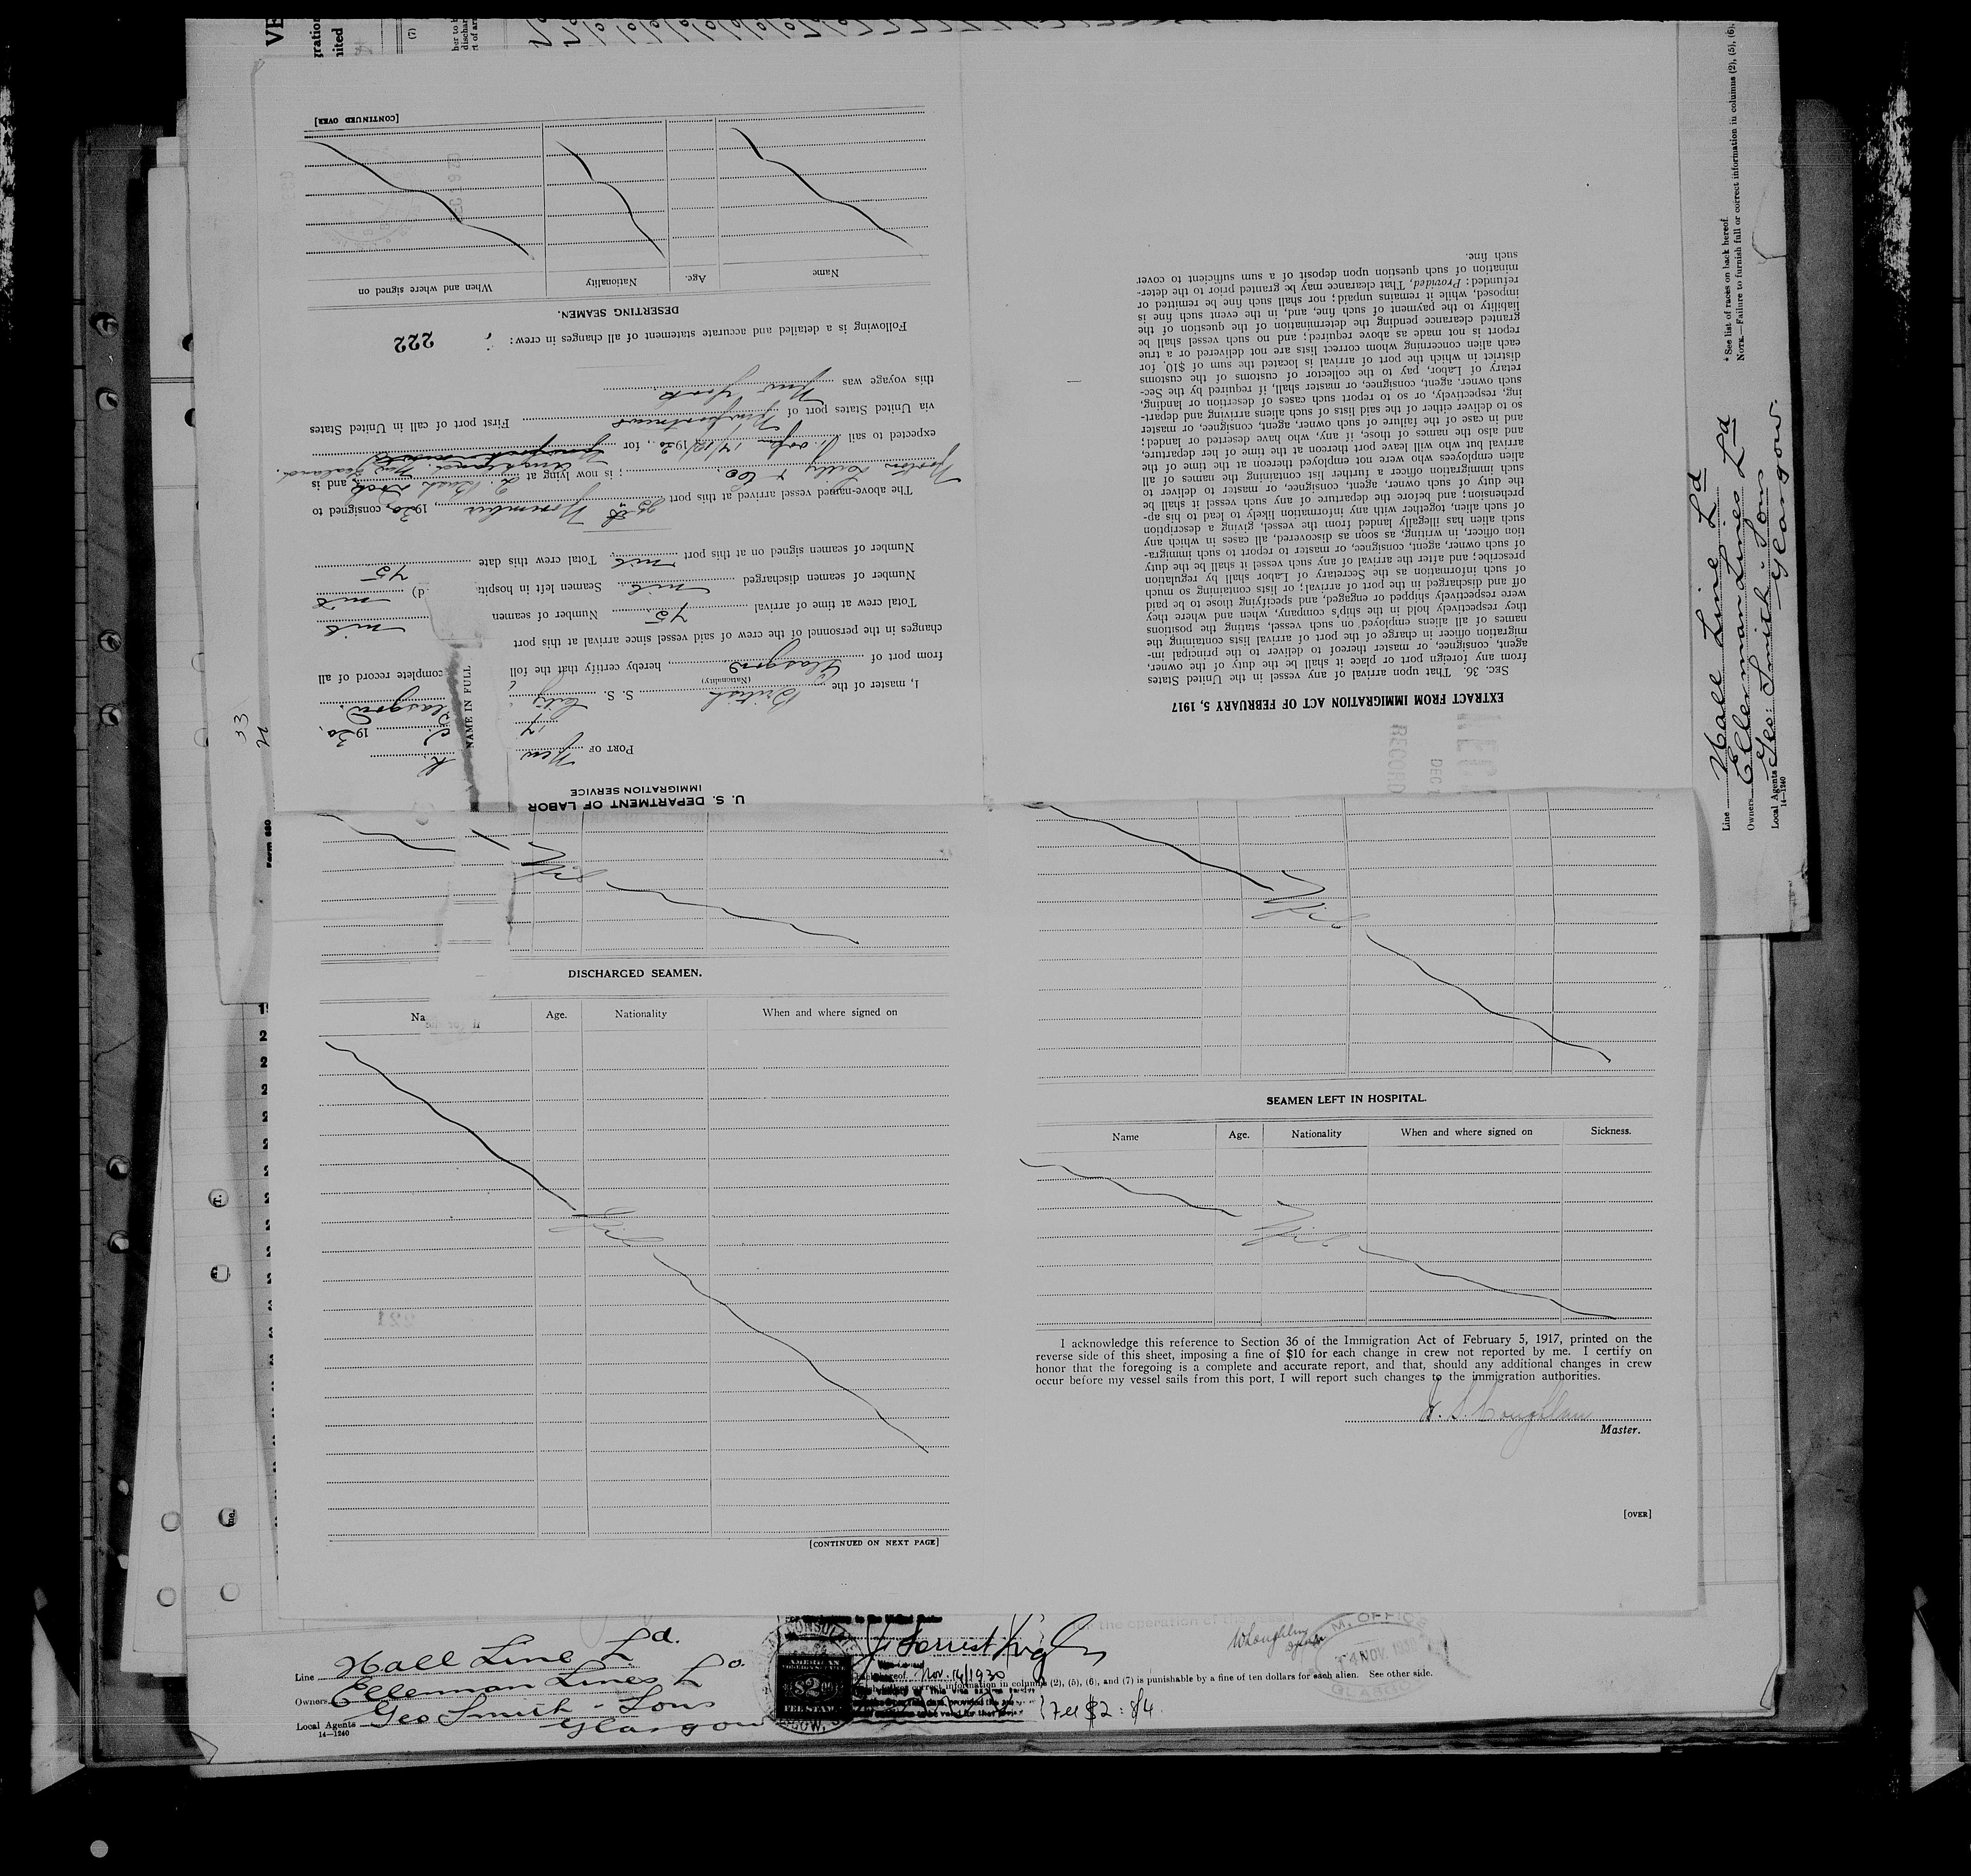 U. S. DEPARTMENT OF LABOR
IMMIGRATION SERVICE
PORT OF New
17 1930
I, master of the British S. S. City Glasgow
(Nationality)
from port of Glasgow, hereby certify that the foll complete record of all
changes in the personnel of the crew of said vessel since arrival at this port
Total crew at time of arrival 75 Number of seamen nil
Number of seamen discharged nil Seamen left in hospita d) nil
Number of seamen signed on at this port nil Total crew this date 75
The above-named vessel arrived at this port 25th November, 1930, consigned to
Norton Lilly & Co.; is now lying at Bush Dock, and is
Auckland. New Zealand.
expected to sail 14/12/1930., for
via United States port of Newport news First port of call in United States
this voyage was New York
Following is a detailed and accurate statement of all changes in crew:
222
DESERTING SEAMEN.
Name Age. Nationality When and where signed on
[CONTINUED OVER]
EXTRACT FROM IMMIGRATION ACT OF FEBRUARY 5, 1917
SEC. 36. That upon arrival of any vessel in the United States
from any foreign port or place it shall be the duty of the owner,
agent, consignee, or master thereof to deliver to the principal im-
migration officer in charge of the port of arrival lists containing the
names of all aliens employed on such vessel, stating the positions
they respectively hold in the ship's company, when and where they
were respectively shipped or engaged, and specifying those to be paid
off and discharged in the port of arrival; or lists containing so much
of such information as the Secretary of Labor shall by regulation
prescribe; and after the arrival of any such vessel it shall be the duty
of such owner, agent, consignee, or master to report to such immigra-
tion officer, in writing, as soon as discovered, all cases in which any
such alien has illegally landed from the vessel, giving a description
of such alien, together with any information likely to lead to his ap-
prehension; and before the departure of any such vessel it shall be
the duty of such owner, agent, consignee, or master to deliver to
such immigration officer a further list containing the names of all
alien employees who were not employed thereon at the time of the
arrival but who will leave port thereon at the time of her departure,
and also the names of those, if any, who have deserted or landed;
and in case of the failure of such owner, agent, consignee, or master
so to deliver either of the said lists of such aliens arriving and depart-
ing, respectively, or so to report such cases of desertion or landing,
such owner, agent, consignee, or master shall, if required by the Sec-
retary of Labor, pay to the collector of customs of the customs
district in which the port of arrival is located the sum of $10 for
each alien concerning whom correct lists are not delivered or a true
report is not made as above required; and no such vessel shall be
granted clearance pending the determination of the question of the
liability to the payment of such fine, and, in the event such fine is
imposed, while it remains unpaid; nor shall such fine be remitted or
refunded: Provided, That clearance may be granted prior to the deter-
mination of such question upon deposit of a sum sufficient to cover
such fine.
NAME IN FULL
33
Nil
DISCHARGED SEAMEN.
Na Age. Nationality When and where signed on
Nil
[CONTINUED ON NEXT PAGE]
Nil
SEAMEN LEFT IN HOSPITAL.
Name Age. Nationality When and where signed on Sickness.
Nil
I acknowledge this reference to Section 36 of the Immigration Act of February 5, 1917, printed on the
reverse side of this sheet, imposing a fine of $10 for each change in crew not reported by me. I certify on
honor that the foregoing is a complete and accurate report, and that, should any additional changes in crew
occur before my vessel sails from this port, I will report such changes to the immigration authorities.
Master.
[OVER]
* See list of races on back hereof.
NOTE.—Failure to furnish full or correct information in columns (2), (5), (6),
Line Hall Line Ld
Owners Ellerman Lines Ld
Local Agents Geo: Smith & Sons
Glasgow.
14—1240
Line Hall Line Ld.
Owners Ellerman Lines Lo.
Local Agents Geo Smith & Sons
14—1240
Glasgow
AMERICAN
$2
Nov. 14/1930
information in columns (2), (5), (6), and (7) is punishable by a fine of ten dollars for each alien. See other side.
Fee $2 : 8/4
M. OFFICE
14 NOV. 1930
GLASGOW